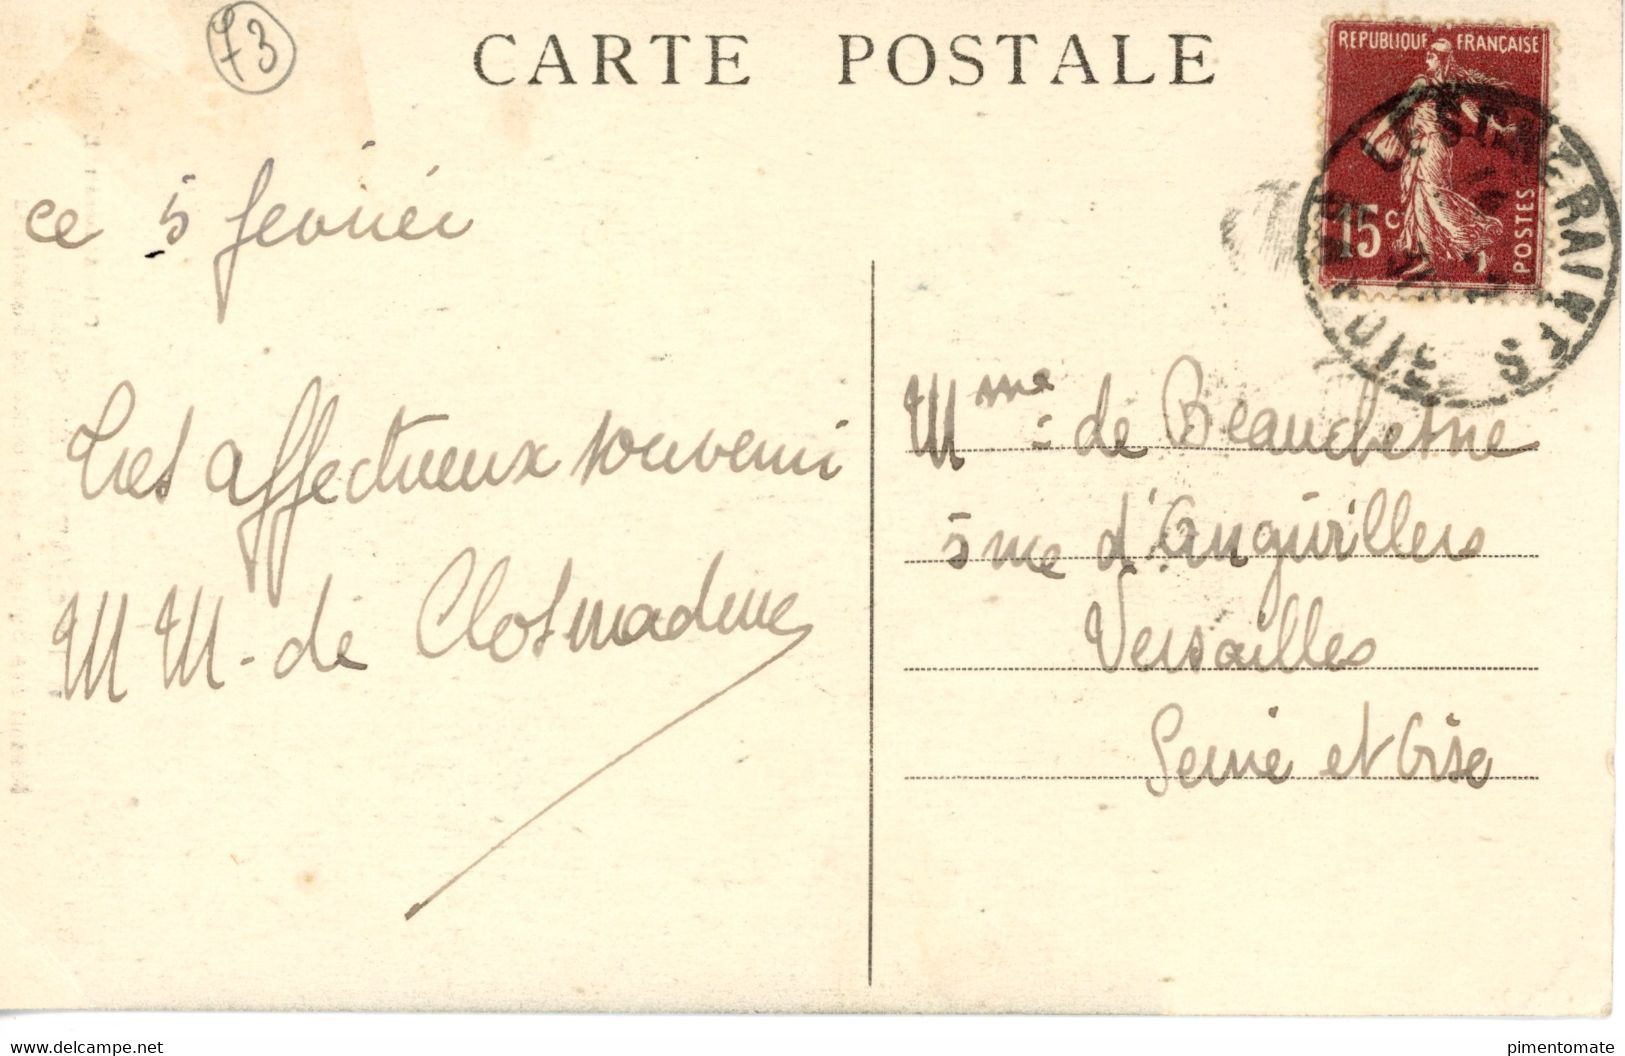 73
CARTE POSTALE
REPUBLIQUE FRANÇAISE
15c
POSTES
ce 5 février
Très affectueux souvenir
M M. de Closmadeuc
Mme de Beauchesne
5 rue d'Anguivillers
Versailles
Seine et Oise
www.delcampe.net
pimentomate